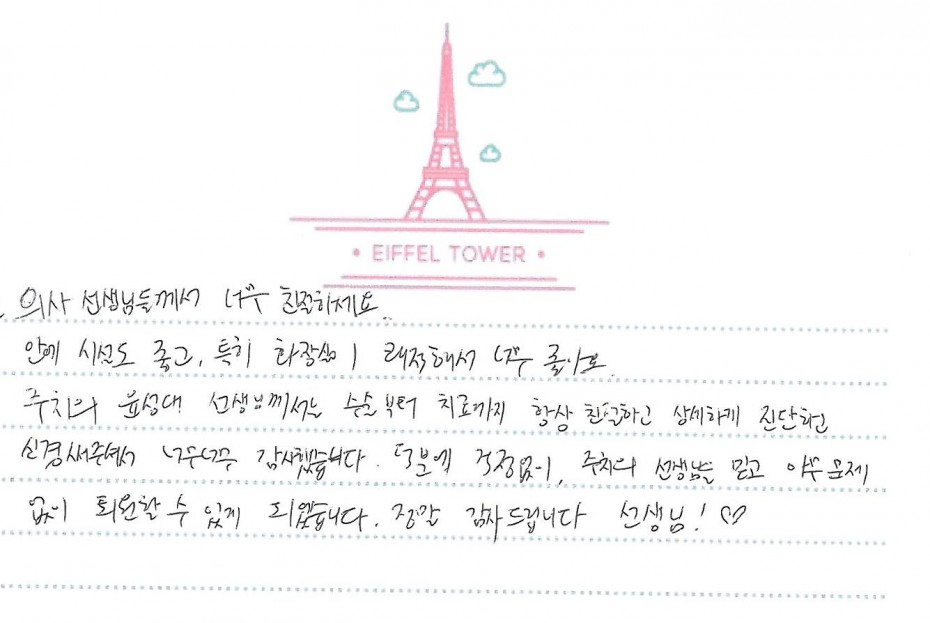 • EIFFEL TOWER •
의사 선생님들께서 너무 친절하세요.
안에 시설도 좋고, 특히 화장실이 쾌적해서 너무 좋아요.
주치의 윤성대 선생님께서는 수술부터 치료까지 항상 친절하고 상세하게 진단하고
신경써주셔서 너무너무 감사했습니다. 덕분에 걱정없이, 주치의 선생님을 믿고 아무 문제
없이 퇴원할 수 있게 되었습니다. 정말 감사드립니다 선생님! ♡